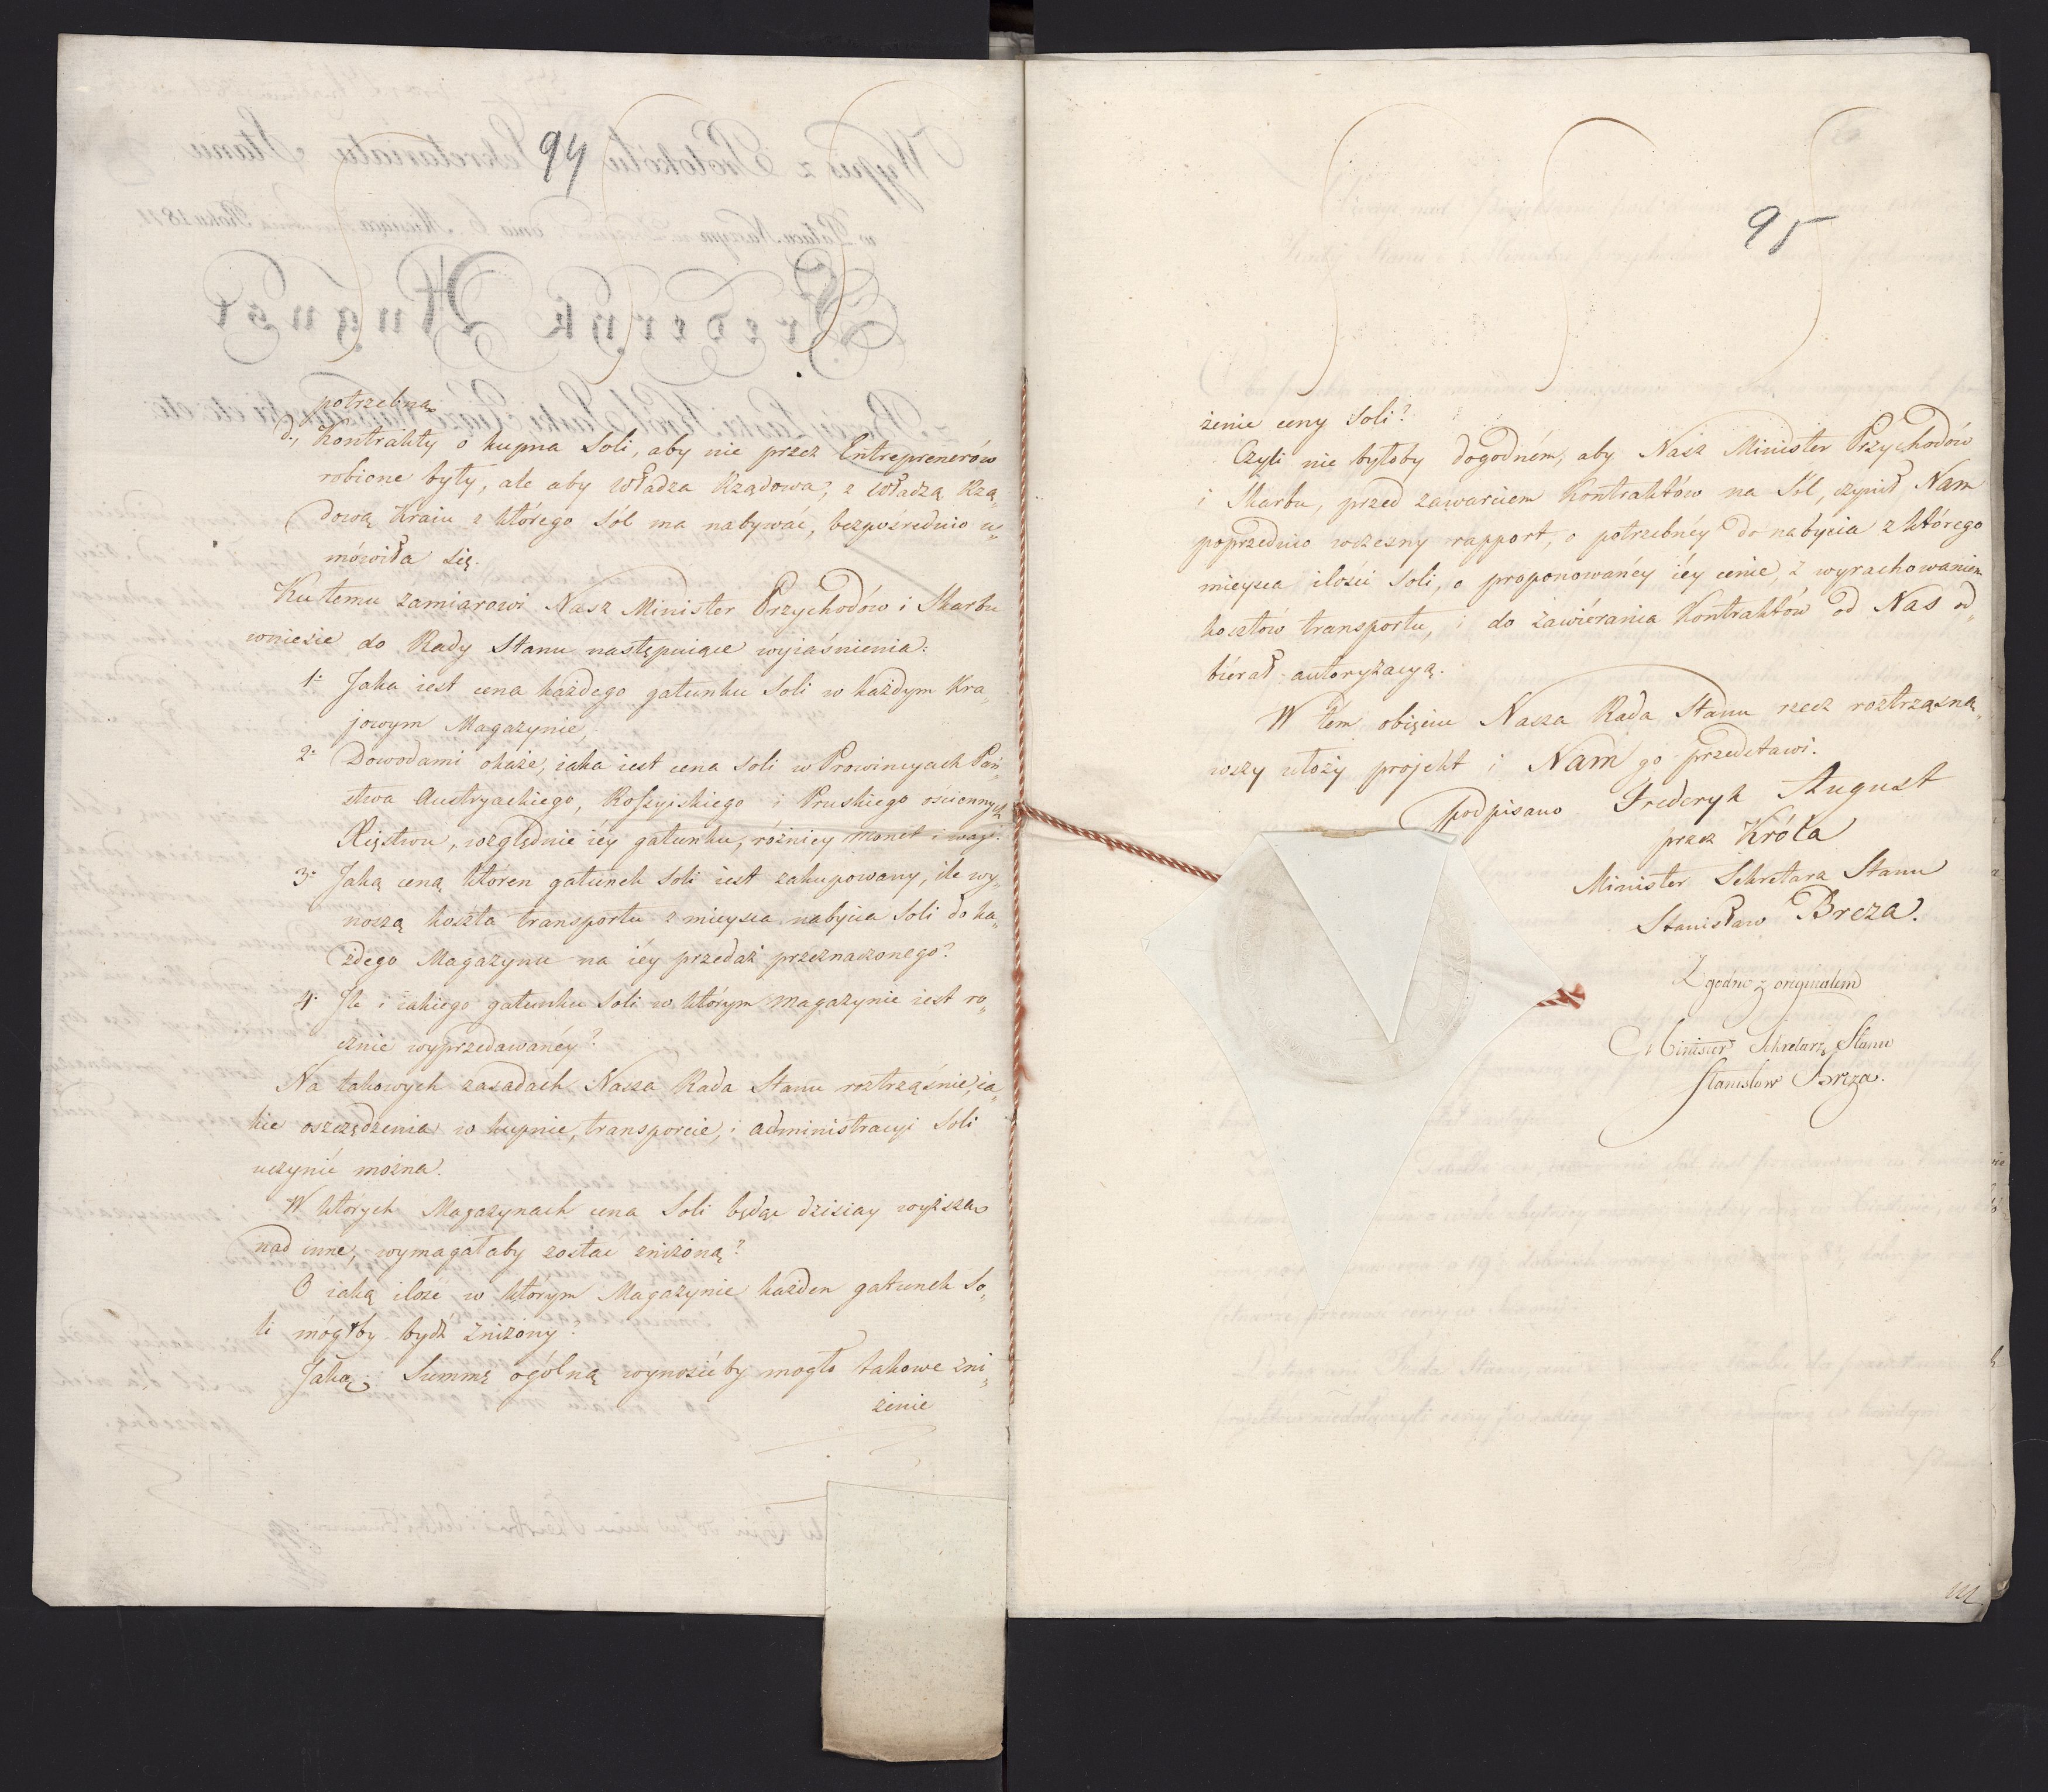 94
potrzebna.
d., Kontrakty o kupna Soli, aby nie przez Entreprenerów
robione były, ale aby Władza Rządowa, z Władzą Rzą„
dową Kraiu z którego Sól ma nabywać, bezpośrednio u„
mówiła się.
Ku temu zamiarowi Nasz Minister Przychodów i Skarbu
wniesie do Rady Stanu następuiące wyiaśnienia:
1. Jaka iest cena każdego gatunku Soli w każdym Kra„
jowym Magazynie
2. Dowodami okaże, iaka iest cena Soli w Prowincyach Pań„
stwa Austryackiego, Rossyiskiego i Pruskiego ościennych
Xięstwu, względnie iéy gatunku, różnicy monet i wagi.
3. Jaką ceną któren gatunek Soli iest zakupowany, ile wy„
noszą koszta transportu z mieysca nabycia Soli do ka„
żdego Magazynu na iéy przedaż przeznaczonego?
4. Jle i iakiego gatunku Soli w którym magazynie iest ro„
cznie wyprzedawanéy?
Na takowych zasadach Nasza Rada Stanu roztrząśnie, ia„
kie oszczędzenia w kupnie, transporcie, i administracyi Soli
uczynić można.
W których Magazynach cena Soli będąc dzisiay wyższa
nad inne, wymagałaby zostać zniżoną?
O iaką ilość w którym Magazynie każden gatunek So„
li mógłby bydź zniżony?
Jaką Summę ogólną wynosićby mogło takowe zni„
żenie
95
żenie ceny Soli?
Czyli nie byłoby dogodném, aby Nasz Minister Przychodów
i Skarbu, przed zawarciem Kontraktów na Sól, czynił Nam
poprzednio wczesny rapport, o potrzebnéy do nabycia z którego
mieysca ilości Soli, o proponowanéy iéy cenie, z wyrachowaniem
kosztów transportu, i do zawiérania Kontraktów od Nas od„
biérał autoryzacyą.
W tém obięciu Nasza Rada Stanu rzecz roztrząsną„
wszy ułoży projekt i Nam go przedstawi.
Podpisano Frederyk August
przez Króla
Minister Sekretarz Stanu
Stanisław Breza.
Zgodno z originałem
Minister Sekretarz Stanu
Stanisław Breza.